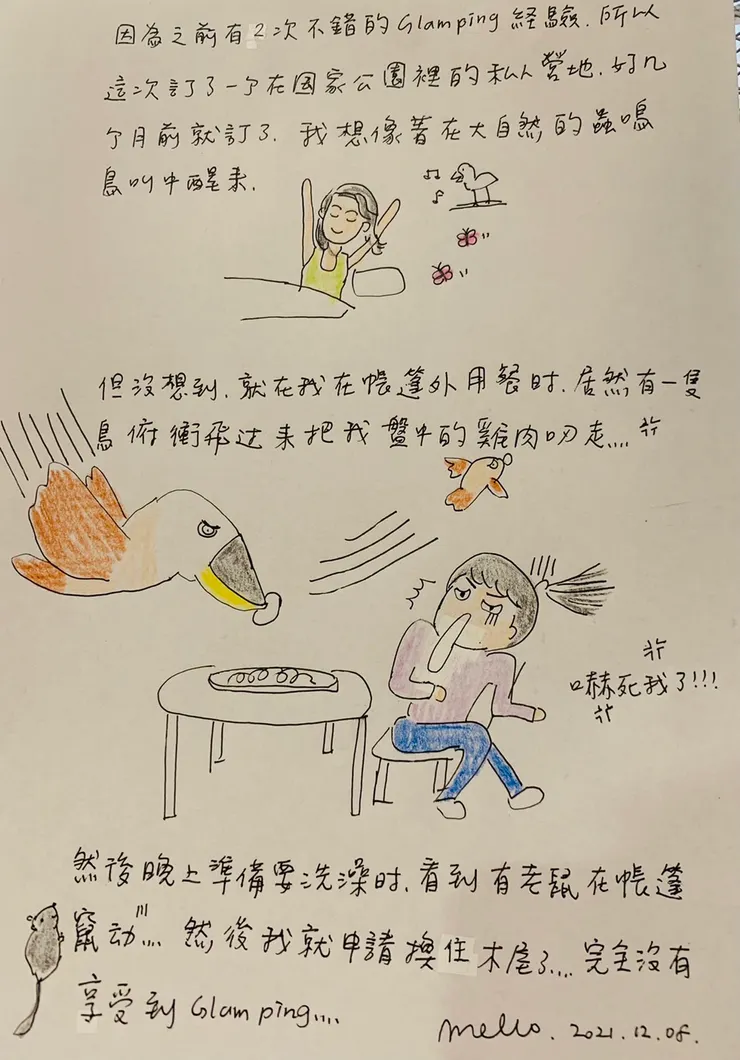 因為之前有2次不錯的Glamping経驗.所以
這次訂了一个在国家公園裡的私人營地.好几
个月前就訂了.我想像著在大自然的蟲鳴
鳥叫中醒来.
但沒想到.就在我在帳篷外用餐时.居然有一隻
鳥俯衝飛过来把我盤中的雞肉叨走....
嚇死我了!!!
然後晚上準備要洗澡时.看到有老鼠在帳篷
竄动.... 然後我就申請換住木屋了.... 完全沒有
享受到Glamping....
Mello. 2021.12.08.